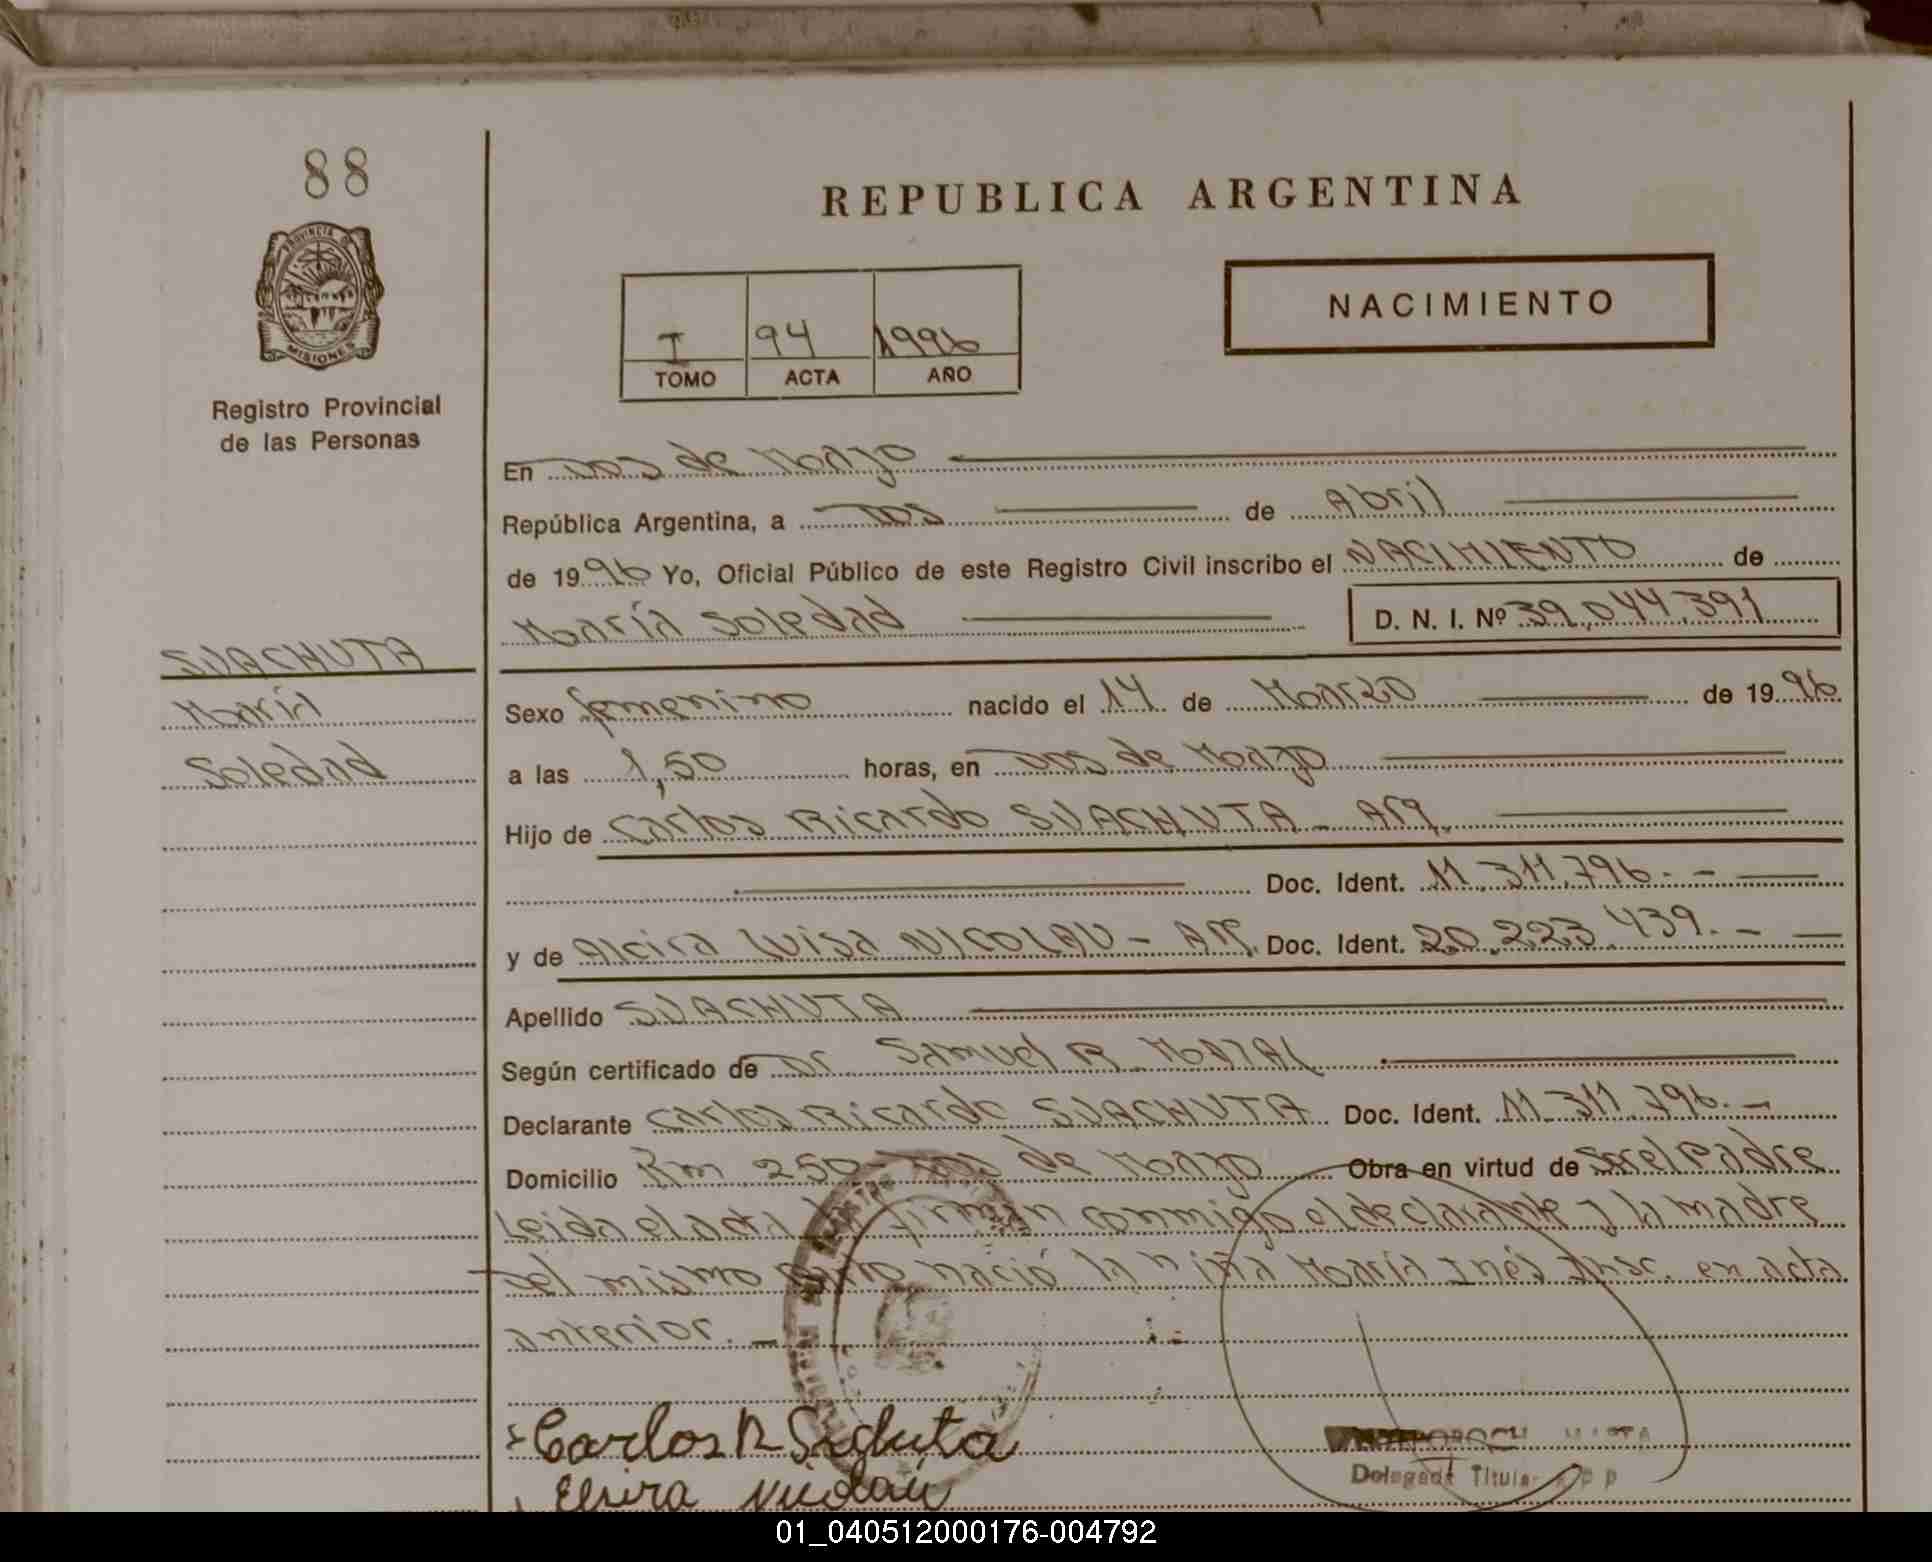 88
REPUBLICA ARGENTINA
PROVINCIA DE
MISIONES
Registro Provincial
de las Personas
I 94 1996
TOMO ACTA AÑO
NACIMIENTO
En Dos de Mayo
República Argentina, a Dos de Abril
de 1996 Yo, Oficial Público de este Registro Civil inscribo el NACIMIENTO de
María Soledad D. N. I. Nº 39.044.391
SJACHUTA
María
Soledad
Sexo femenino nacido el 14 de Marzo de 1996.
a las 1,50 horas, en Dos de Mayo
Hijo de Carlos Ricardo SJACHUTA - Arg.
Doc. Ident. 11.311.796.-
y de Alcira Luisa NICOLAU - Arg. Doc. Ident. 20.223.439.-
Apellido SJACHUTA
Según certificado de Dr. Samuel R.
Declarante Carlos Ricardo SJACHUTA Doc. Ident. 11.311.796.-
Domicilio Km 250 Dos de Mayo Obra en virtud de Ser el Padre
Leida el acta la firman conmigo el declarante y la madre
Del mismo parto nació la niña María Inés Insc. en acta
anterior.-
Carlos R
Delegada Titular
01_040512000176-004792